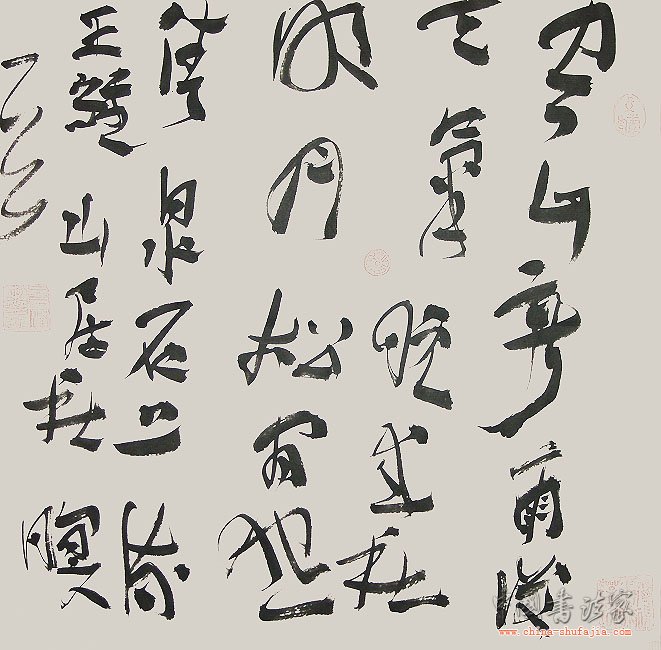 空山新雨後
天氣晚來秋
明月松間照
清泉石上流
王維山居秋暝
中国书法家
www.china-shufajia.com